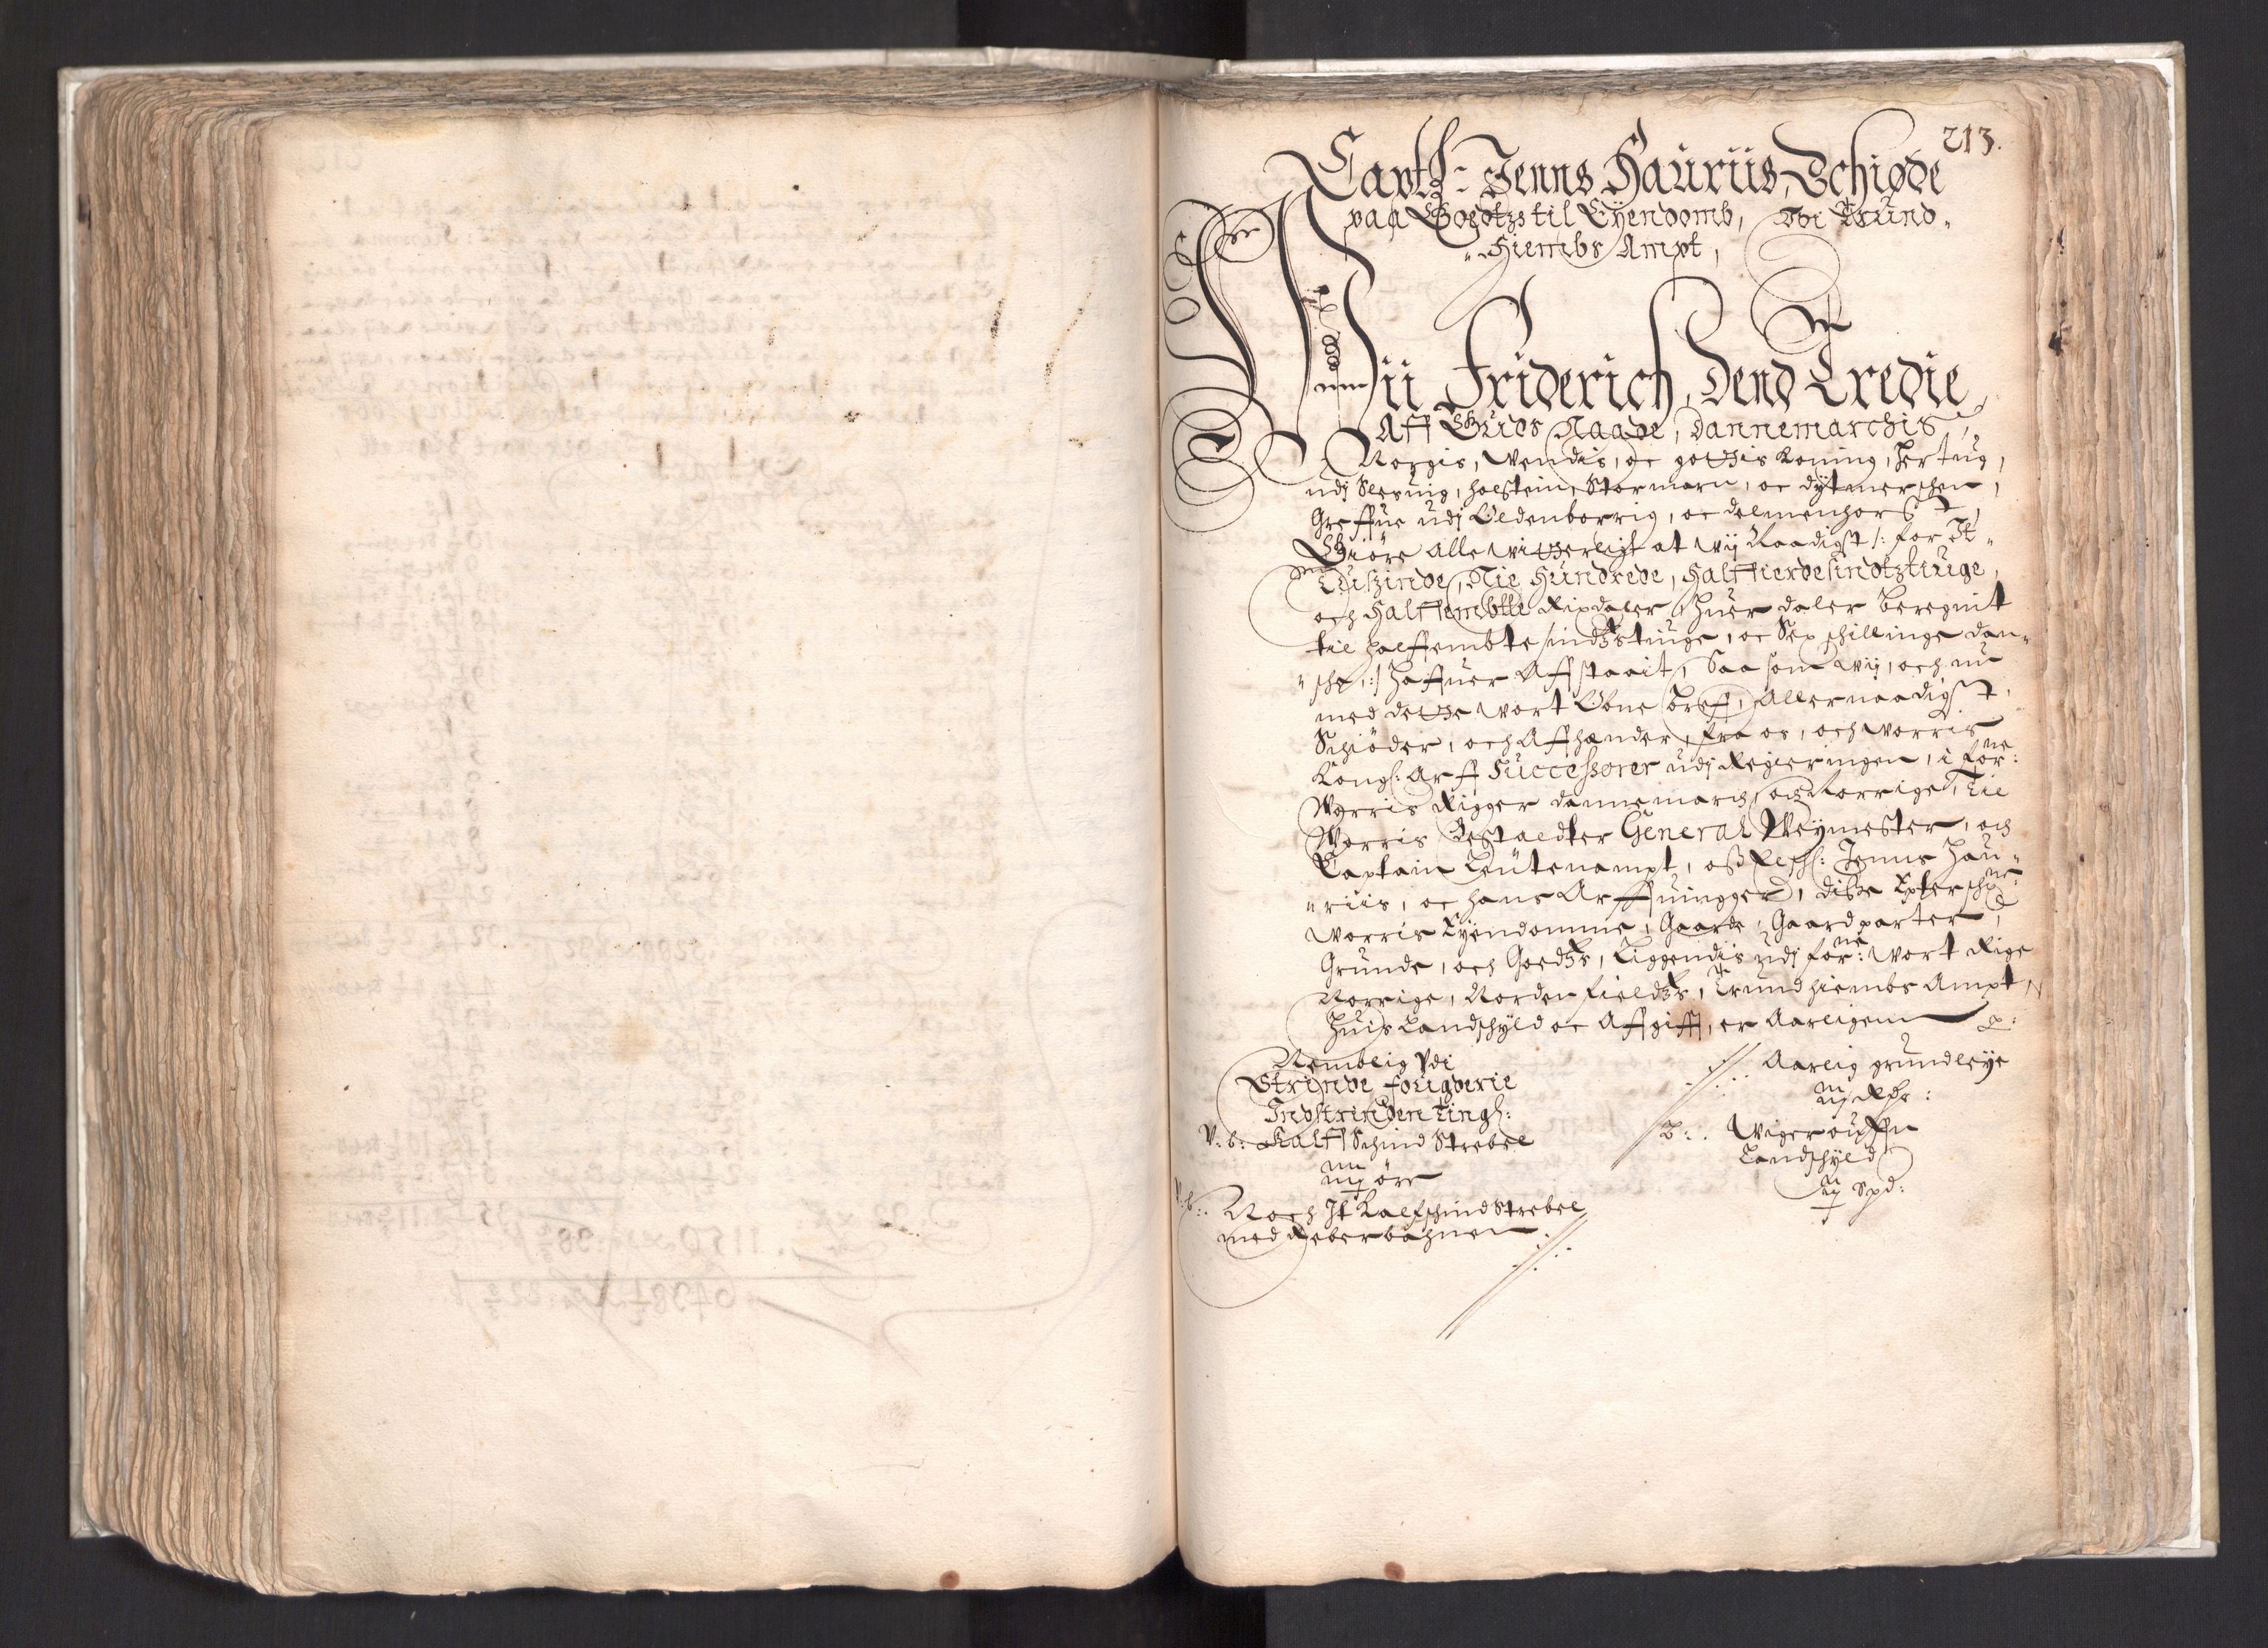 213.
Captl: Jenns Hauriis, Schiøde
paa Goedtzs til Eyendomb, Udi Trund-
hiembs Ampt,
Wii Friderich, Dend Tredie,
Aff Guds Naade, Dannemarchis,
Norgis, Wendis, oc gottis Koning, Hertug,
udj Slesuig, Holstein, Stormarn, oc Dytmerschen,
Greffue udj Oldenborrig, oc Delmenhorst,
Giöre Alle witterligt at wij Naadigst /: for Et
Tuszinde, Nie Hundrede, Halffierdesindtztiuge,
och Halffembte Rixdaler, Huer daler beregnit
til halffembte sindtztiuge, oc Sex schillinge dan-
sche, :/ Haffuer Affstaait, Saa som wij, och nu
med dette wort Obne breff, Allernaadigst,
Schiöder, och Affhænder, fra os, och worris
Kongl: Arff Successorer udj Regieringen, i forne:
Worris Rigger Dannemarch, och Norrige, Til
Worris Bestaldter General Weymester, och
Captain Leutenampt, oß Elschl: Jenns Hau-
riis, oc hans Arffuingger, diße Epterschne:
worris Eyendomme, Gaarde, Gaardparter,
Grunde, och Goedtzs, Liggendis udj forne: wort Rige
Norrige, Nordenfieldtzs, Trundhiembs Ampt,
Huis Landschyld oc Affgifft, er Aarligen
Nemblig Udi
Strinde fougderie
Indstrinden Tingl:
V: b: Kalffschind Strebel
iiij öre
V: b: Noch It Kalfschind Strebel
med Reberbahnen
Aarlig grundleye
iij Rdr:
B: Wigeroußen
Landschyld
ij Spd: